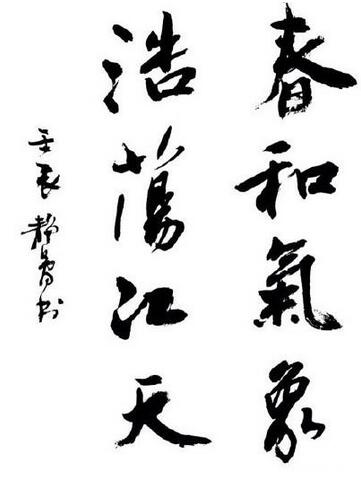 春和氣象
浩蕩江天
壬辰